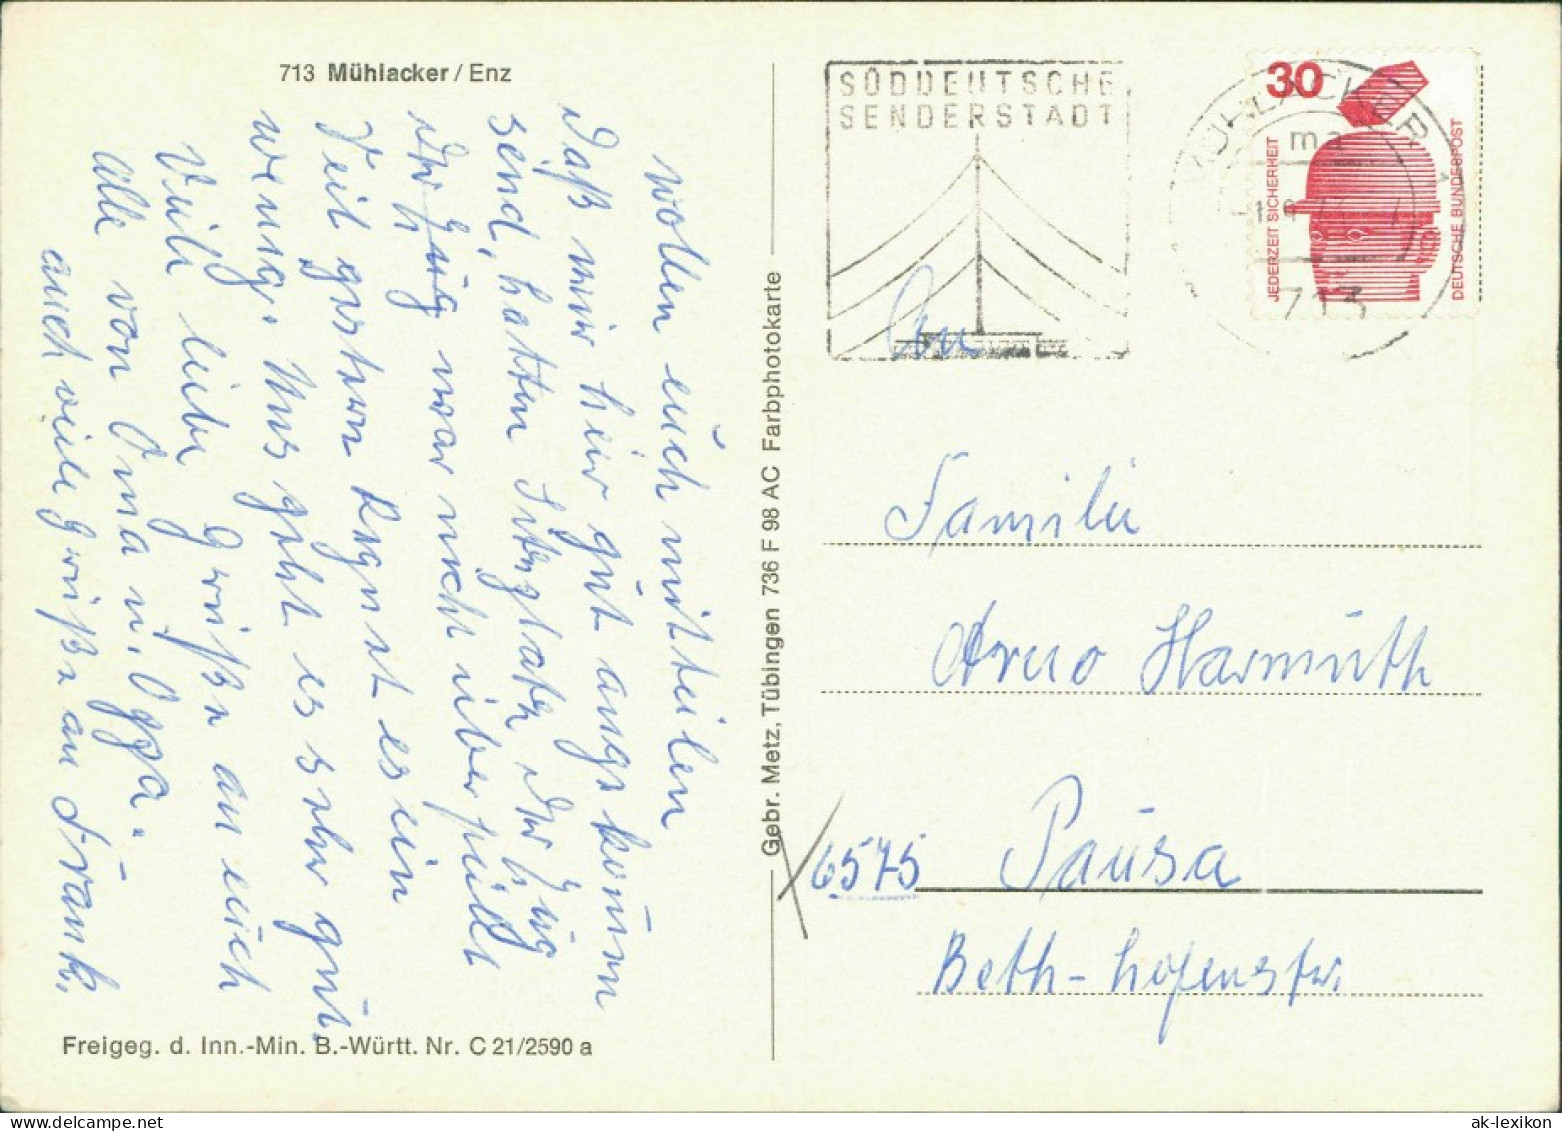 713 Mühlacker / Enz
wollen euch mitteilen
daß wir hier gut angekommen
sind, hatten Sitzplätze der Zug
der Zug war nicht überfüllt
Seit gestern Regnet es ein
wenig. Uns geht es sehr gut.
Viele liebe Grüße an euch
alle von Oma u. Oppa.
auch viele Grüße an Frank.
Freigeg. d. Inn.-Min. B.-Württ. Nr. C 21/2590 a
Gebr. Metz, Tübingen 736 F 98 AC Farbphotokarte
SÜDDEUTSCHE
SENDERSTADT
MÜHLACKER 1
ma
713
30
JEDERZEIT SICHERHEIT
DEUTSCHE BUNDESPOST
An
Familie
Arno Harmuth
6575 Pausa
Beth-hofenstr.
ak-lexikon